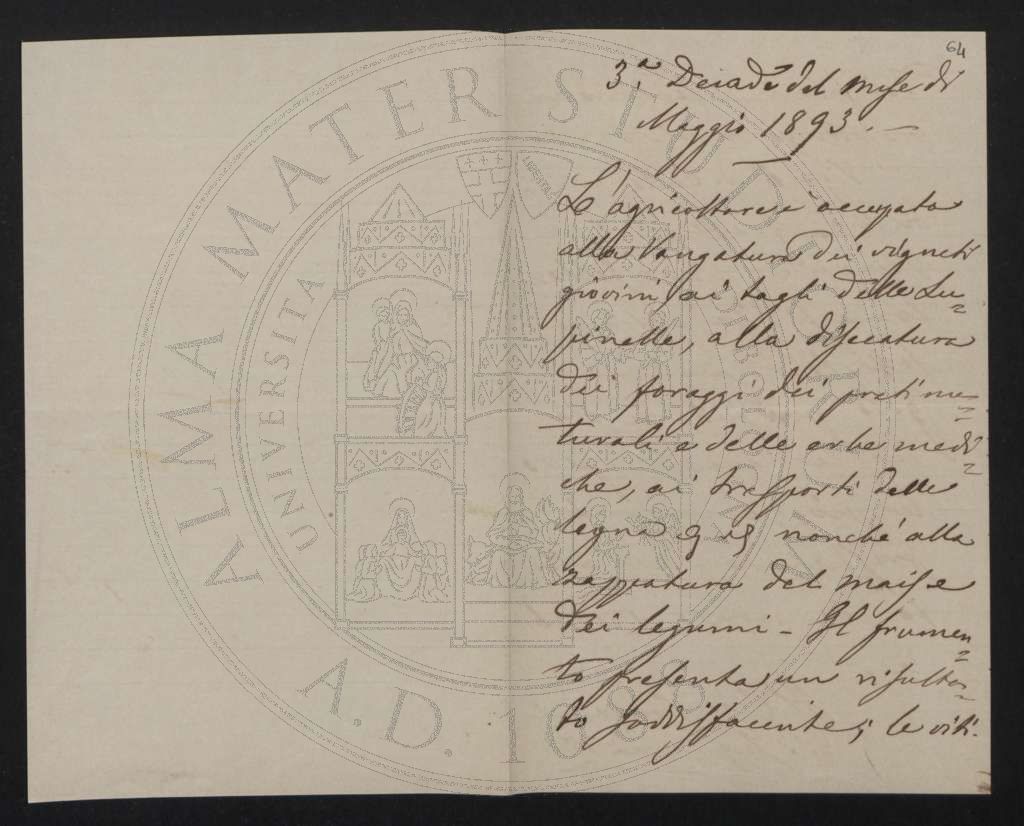 64
3.ª Decade del mese di
Maggio 1893. —
L'agricoltore è occupato
alla Vangatura dei vigneti
giovini, ai tagli delle Lu=
pinelle, alla disseccatura
dei foraggi dei prati na=
turali e delle erbe medi=
che, ai trasporti delle
legna nonché alla
zappatura del mais e
dei legumi - Il frumen=
to presenta un risulta=
to soddisfacente; le viti
ALMA MATER STUDIORUM
UNIVERSITÀ DI BOLOGNA
LIBERTAS
A.D. 1088